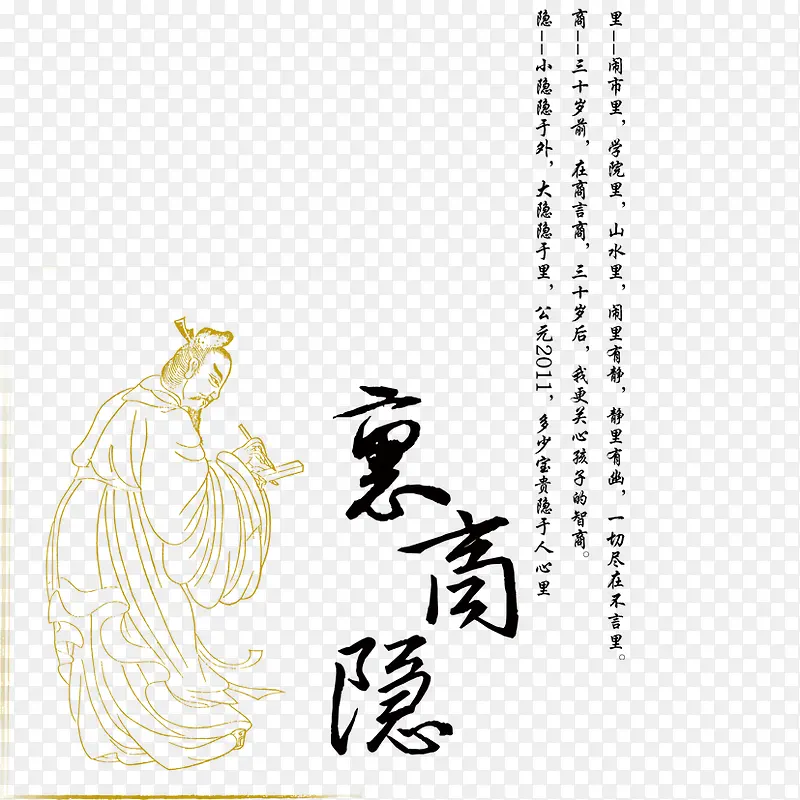 里——闹市里，学院里，山水里，闹里有静，静里有幽，一切尽在不言里。
商——三十岁前，在商言商，三十岁后，我更关心孩子的智商。
隐——小隐隐于外，大隐隐于里，公元2011，多少宝贵隐于人心里
裏
商
隐